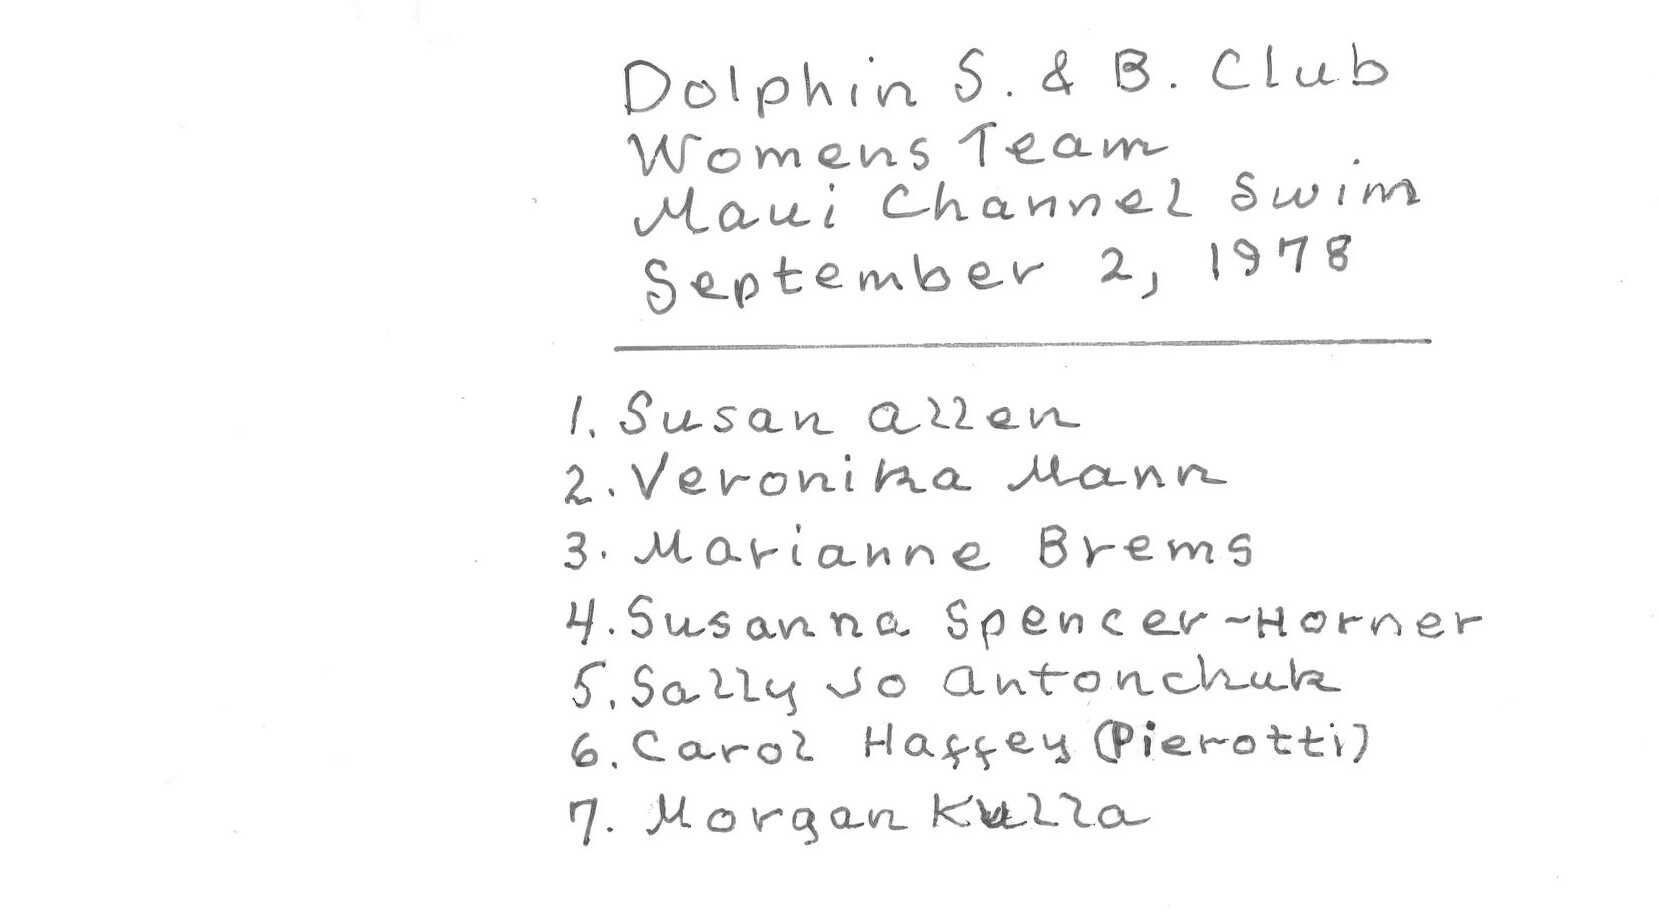 Dolphin S. & B. Club
Womens Team
Maui Channel Swim
September 2, 1978
1. Susan Allen
2. Veronika Mann
3. Marianne Brems
4. Susanna Spencer-Horner
5. Sally Jo Antonchuk
6. Carol Haffey (Pierotti)
7. Morgan Kulla